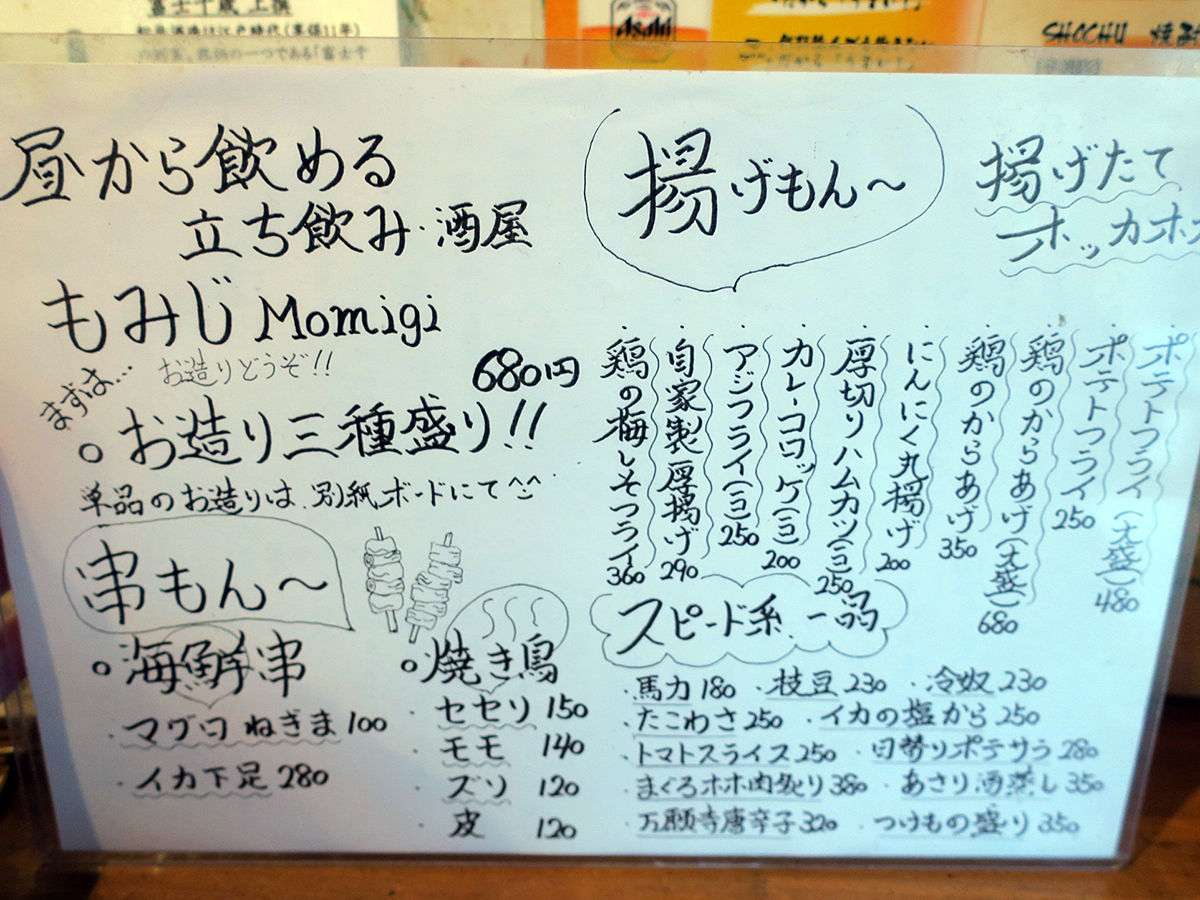 富士千歳 上撰
Asahi
SHOCHU 焼酎
昼から飲める
立ち飲み・酒屋
もみじ Momigi
まずは… お造りどうぞ!!
680円
○お造り三種盛り!!
単品のお造りは、別紙ボードにて^^
串もん〜
○海鮮串
・マグロねぎま 100
・イカ下足 280
○焼き鳥
・セセリ 150
・モモ 140
・ズリ 120
・皮 120
揚げもん〜
揚げたて
ホッカホカ
・ポテトフライ(大盛) 480
・ポテトフライ 250
・鶏のからあげ(大盛) 680
・鶏のからあげ 350
・にんにく丸揚げ 200
・厚切りハムカツ(ヨ) 250
・カレーコロッケ(ヨ) 200
・アジフライ(ヨ) 250
・自家製厚揚げ 290
・鶏の梅しそフライ 360
スピード系 一品
・馬力 180 ・枝豆 230 ・冷奴 230
・たこわさ 250 ・イカの塩から 250
・トマトスライス 250 ・日替りポテサラ 280
・まぐろホホ肉炙り 380 ・あさり酒蒸し 350
・万願寺唐辛子 320 ・つけもの盛り 350